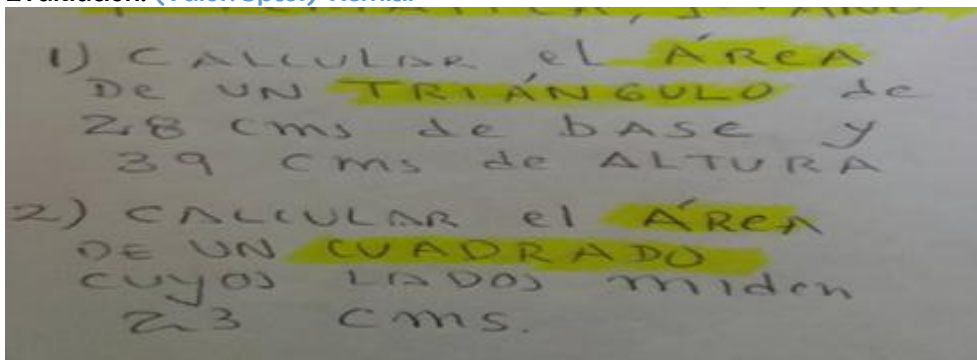 1) CALCULAR el ÁREA
De UN TRIÁNGULO de
2,8 cms de bASe y
39 cms de ALTURA
2) CALCULAR el ÁREA
DE UN CUADRADO
cuyos LADOS miden
2,3 cms.